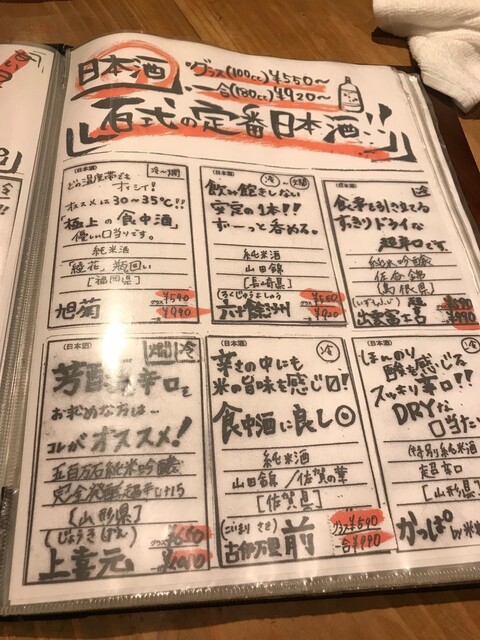 日本酒
グラス(100cc)¥550〜
一合(180cc)¥920〜
百式の定番日本酒!!
(日本酒)
冷〜燗
どの温度帯でも
オイシイ!
オススメは30〜35℃!!
「極上の食中酒」
優しい口当りです。
純米酒
「綾花」瓶囲い
[福岡県]
旭菊
グラス¥590
¥990
(日本酒)
冷〜燗
飲み飽きしない
安定の1本!!
ずーっと呑める。
純米酒
山田錦
[長崎県]
(ろくじゅうよしゅう)
六十餘洲
グラス¥550
¥920
(日本酒)
冷
食事を引き立てる
すっきりドライな
超辛口です。
純米吟醸
佐香錦
[島根県]
(いずもふじ)
出雲富士
¥990
(日本酒)
燗 冷
芳醇辛口を
お求めな方は…
コレがオススメ!
五百万石純米吟醸
完全発酵超辛+15
[山形県]
(じょうきげん)
上喜元
グラス¥650
(日本酒)
冷
辛さの中にも
米の旨味を感じ〼!
食中酒に良し◎
純米酒
山田錦/佐賀の華
[佐賀県]
(こいまり さき)
古伊万里 前
グラス¥590
一合¥990
(日本酒)
冷
ほんのり
酸を感じる
スッキリ辛口!!
DRYな
口当たり
(特別純米酒)
超辛口
[山形県]
かっぱ by米